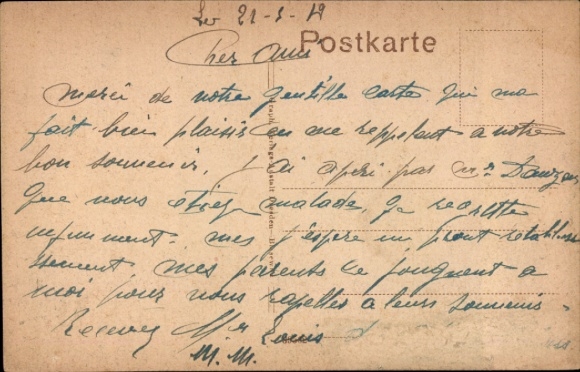 Le 21-5-19
Postkarte
Cher ami
Merci de notre gentille carte qui ma
fait bien plaisir en me reppelant a notre
bon sounenir, j ai apri par mr
que nous étiez malade, je regrette
infiniment. mes j'espère un pront retablis
sement, mes parents ce joignent a
moi pour nous rapeller a leurs sounenir.
Recevez Mr Louis
M. M.